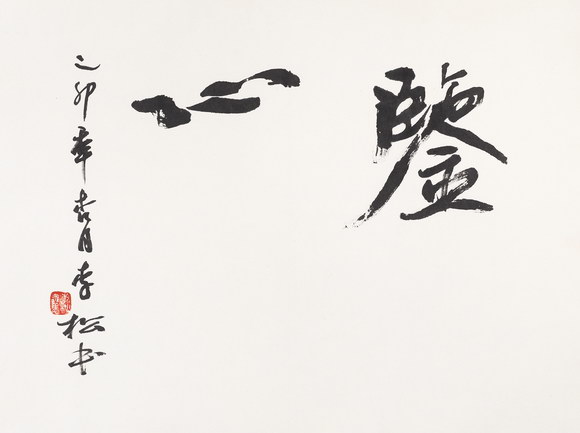 鑒心
卯年春月李松书